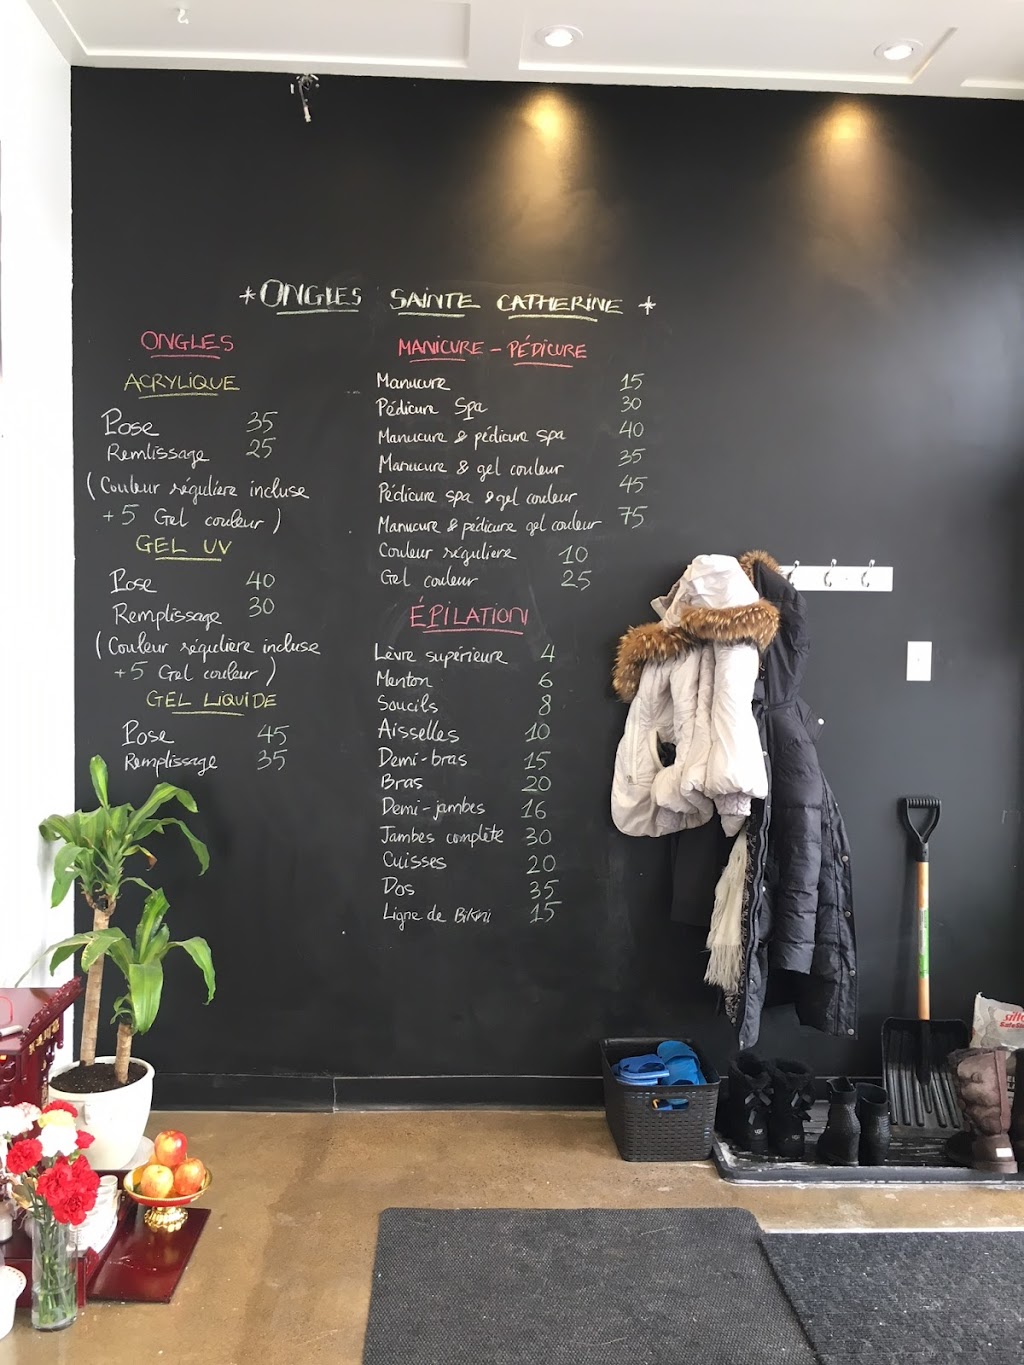 *ONGLES SAINTE CATHERINE*
ONGLES
ACRYLIQUE
Pose 35
Remlissage 25
(Couleur régulière incluse
+5 Gel couleur)
GEL UV
Pose 40
Remplissage 30
(Couleur régulière incluse
+5 Gel couleur)
GEL LIQUIDE
Pose 45
Remplissage 35
MANICURE - PÉDICURE
Manucure 15
Pédicure Spa 30
Manucure & pédicure spa 40
Manucure & gel couleur 35
Pédicure spa & gel couleur 45
Manucure & pédicure gel couleur 75
Couleur régulière 10
Gel couleur 25
ÉPILATION
Lèvre supérieure 4
Menton 6
Soucils 8
Aisselles 10
Demi-bras 15
Bras 20
Demi-jambes 16
Jambes complète 30
Cuisses 20
Dos 35
Ligne de Bikini 15